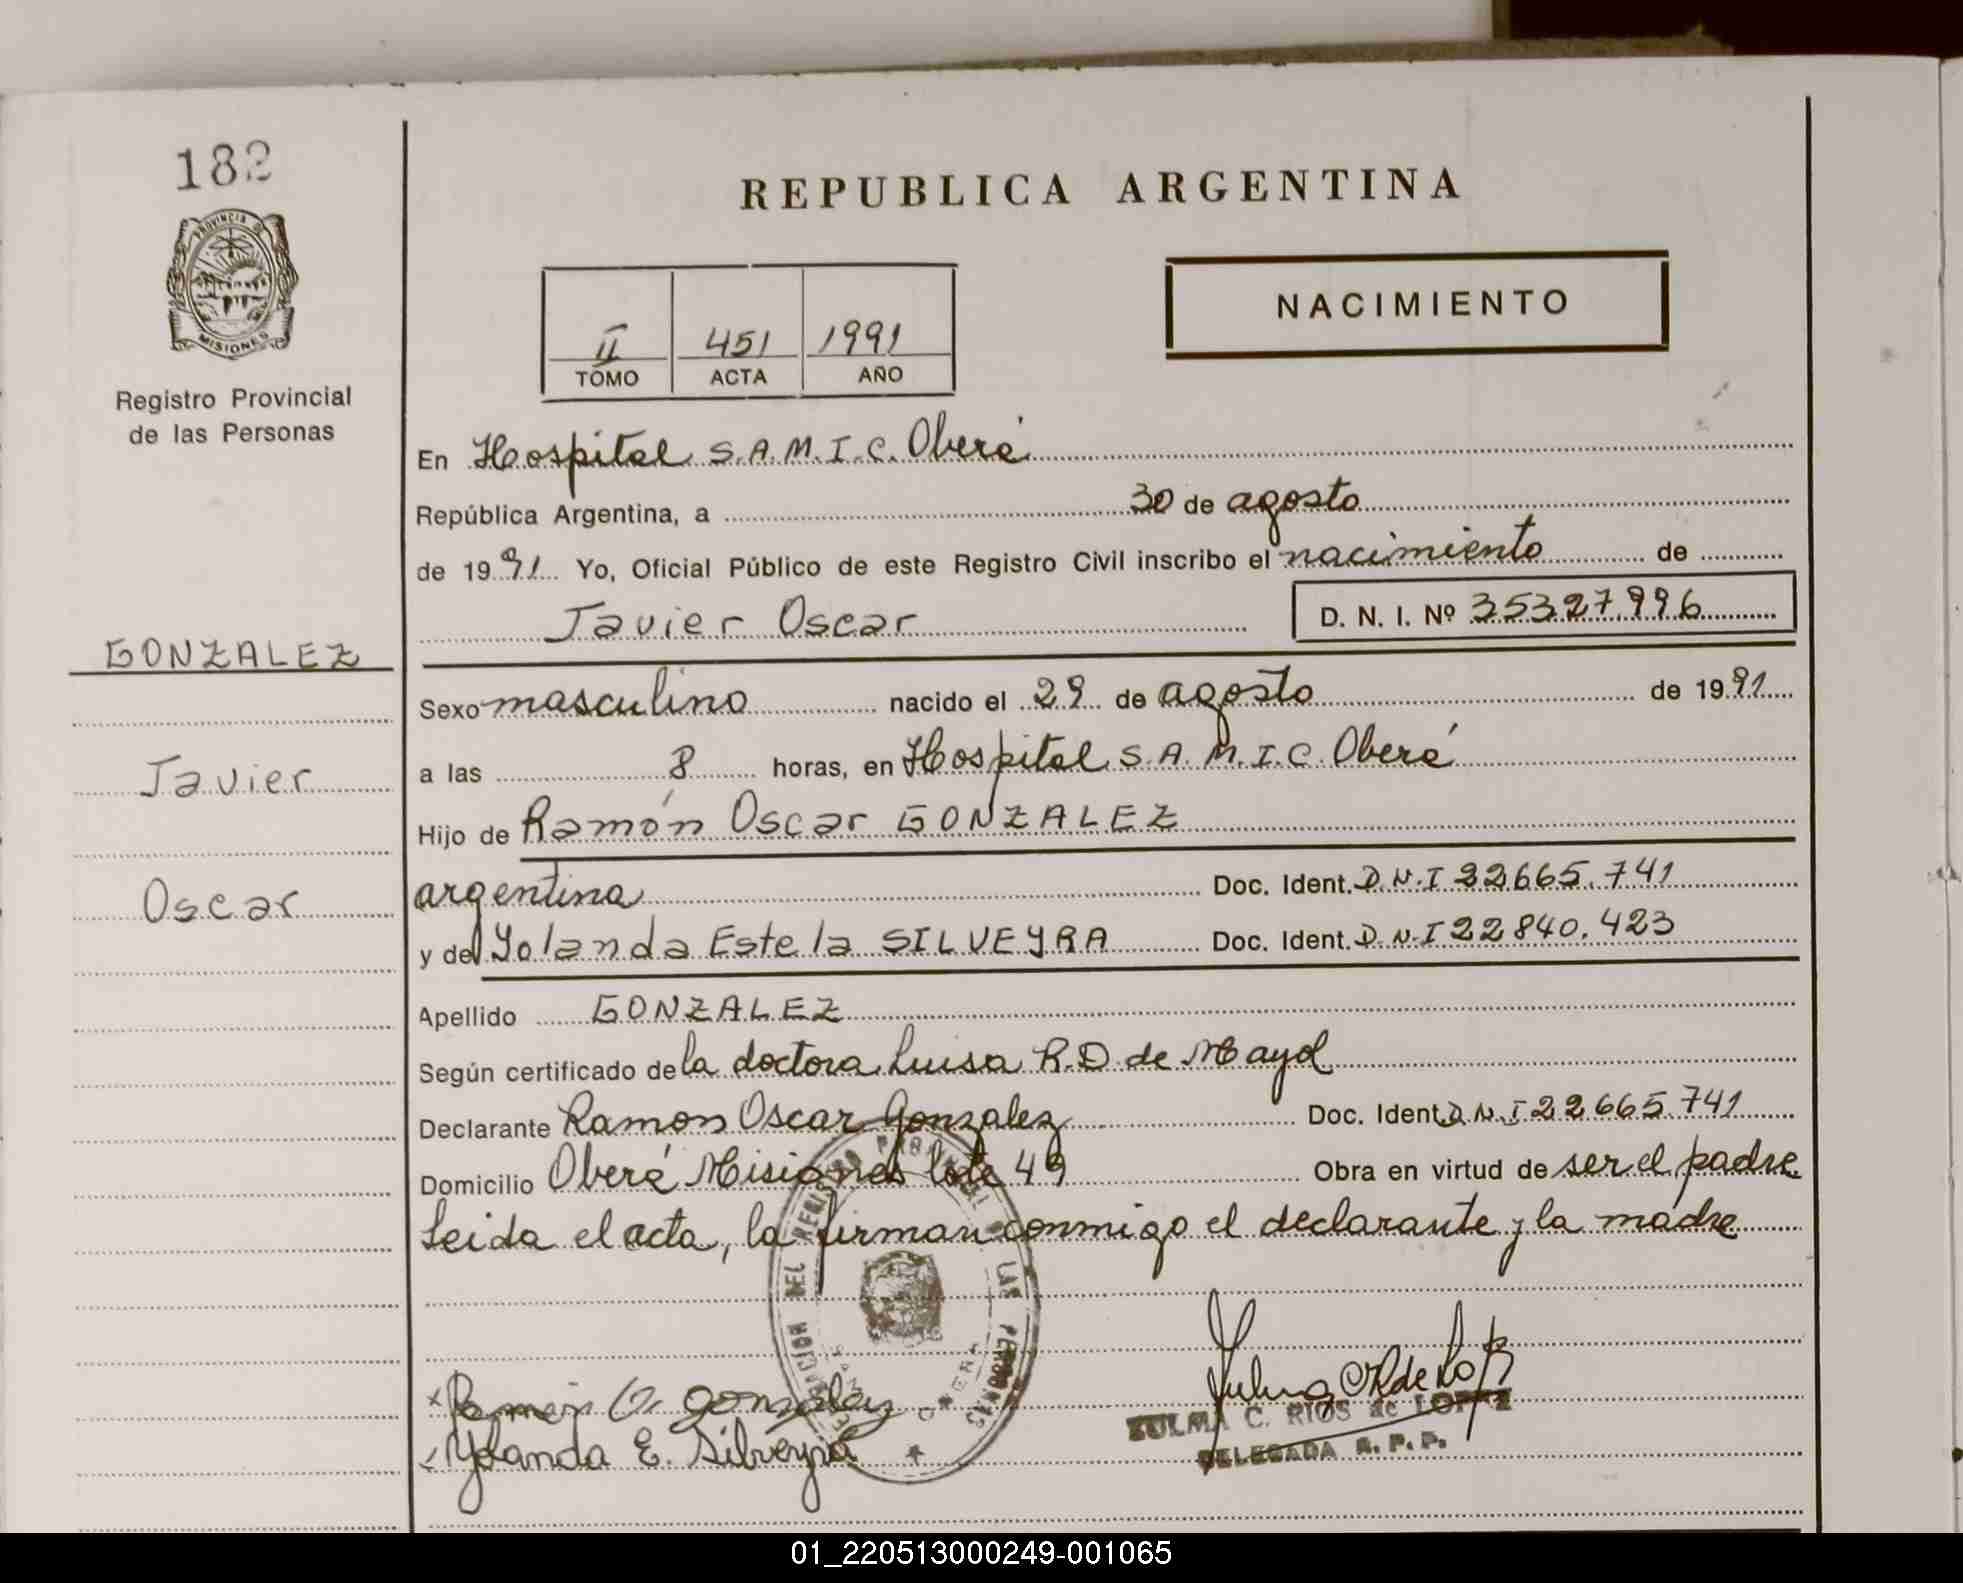 182
PROVINCIA DE
MISIONES
Registro Provincial
de las Personas
GONZALEZ
Javier
Oscar
REPUBLICA ARGENTINA
NACIMIENTO
II 451 1991
TOMO ACTA AÑO
En Hospital S.A.M.I.C. Oberá
República Argentina, a 30 de agosto
de 1991 Yo, Oficial Público de este Registro Civil inscribo el nacimiento de
Javier Oscar D. N. I. Nº 35327.996
Sexo masculino nacido el 29 de agosto de 1991
a las 8 horas, en Hospital S.A.M.I.C. Oberá
Hijo de Ramón Oscar GONZALEZ
argentina Doc. Ident. D.N.I 22665.741
y de Yolanda Estela SILVEYRA Doc. Ident. D.N.I 22840.423
Apellido GONZALEZ
Según certificado de la doctora Luisa R.D. de Mayol
Declarante Ramon Oscar Gonzalez Doc. Ident. D.N.I 22665.741
Domicilio Oberá Misiones lote 49 Obra en virtud de ser el padre
Leida el acta, la firman conmigo el declarante y la madre
Ramon O. gonzalez
Yolanda E. Silveyra
ZULMA C. RIOS de LOPEZ
DELEGADA R. P. P.
01_220513000249-001065